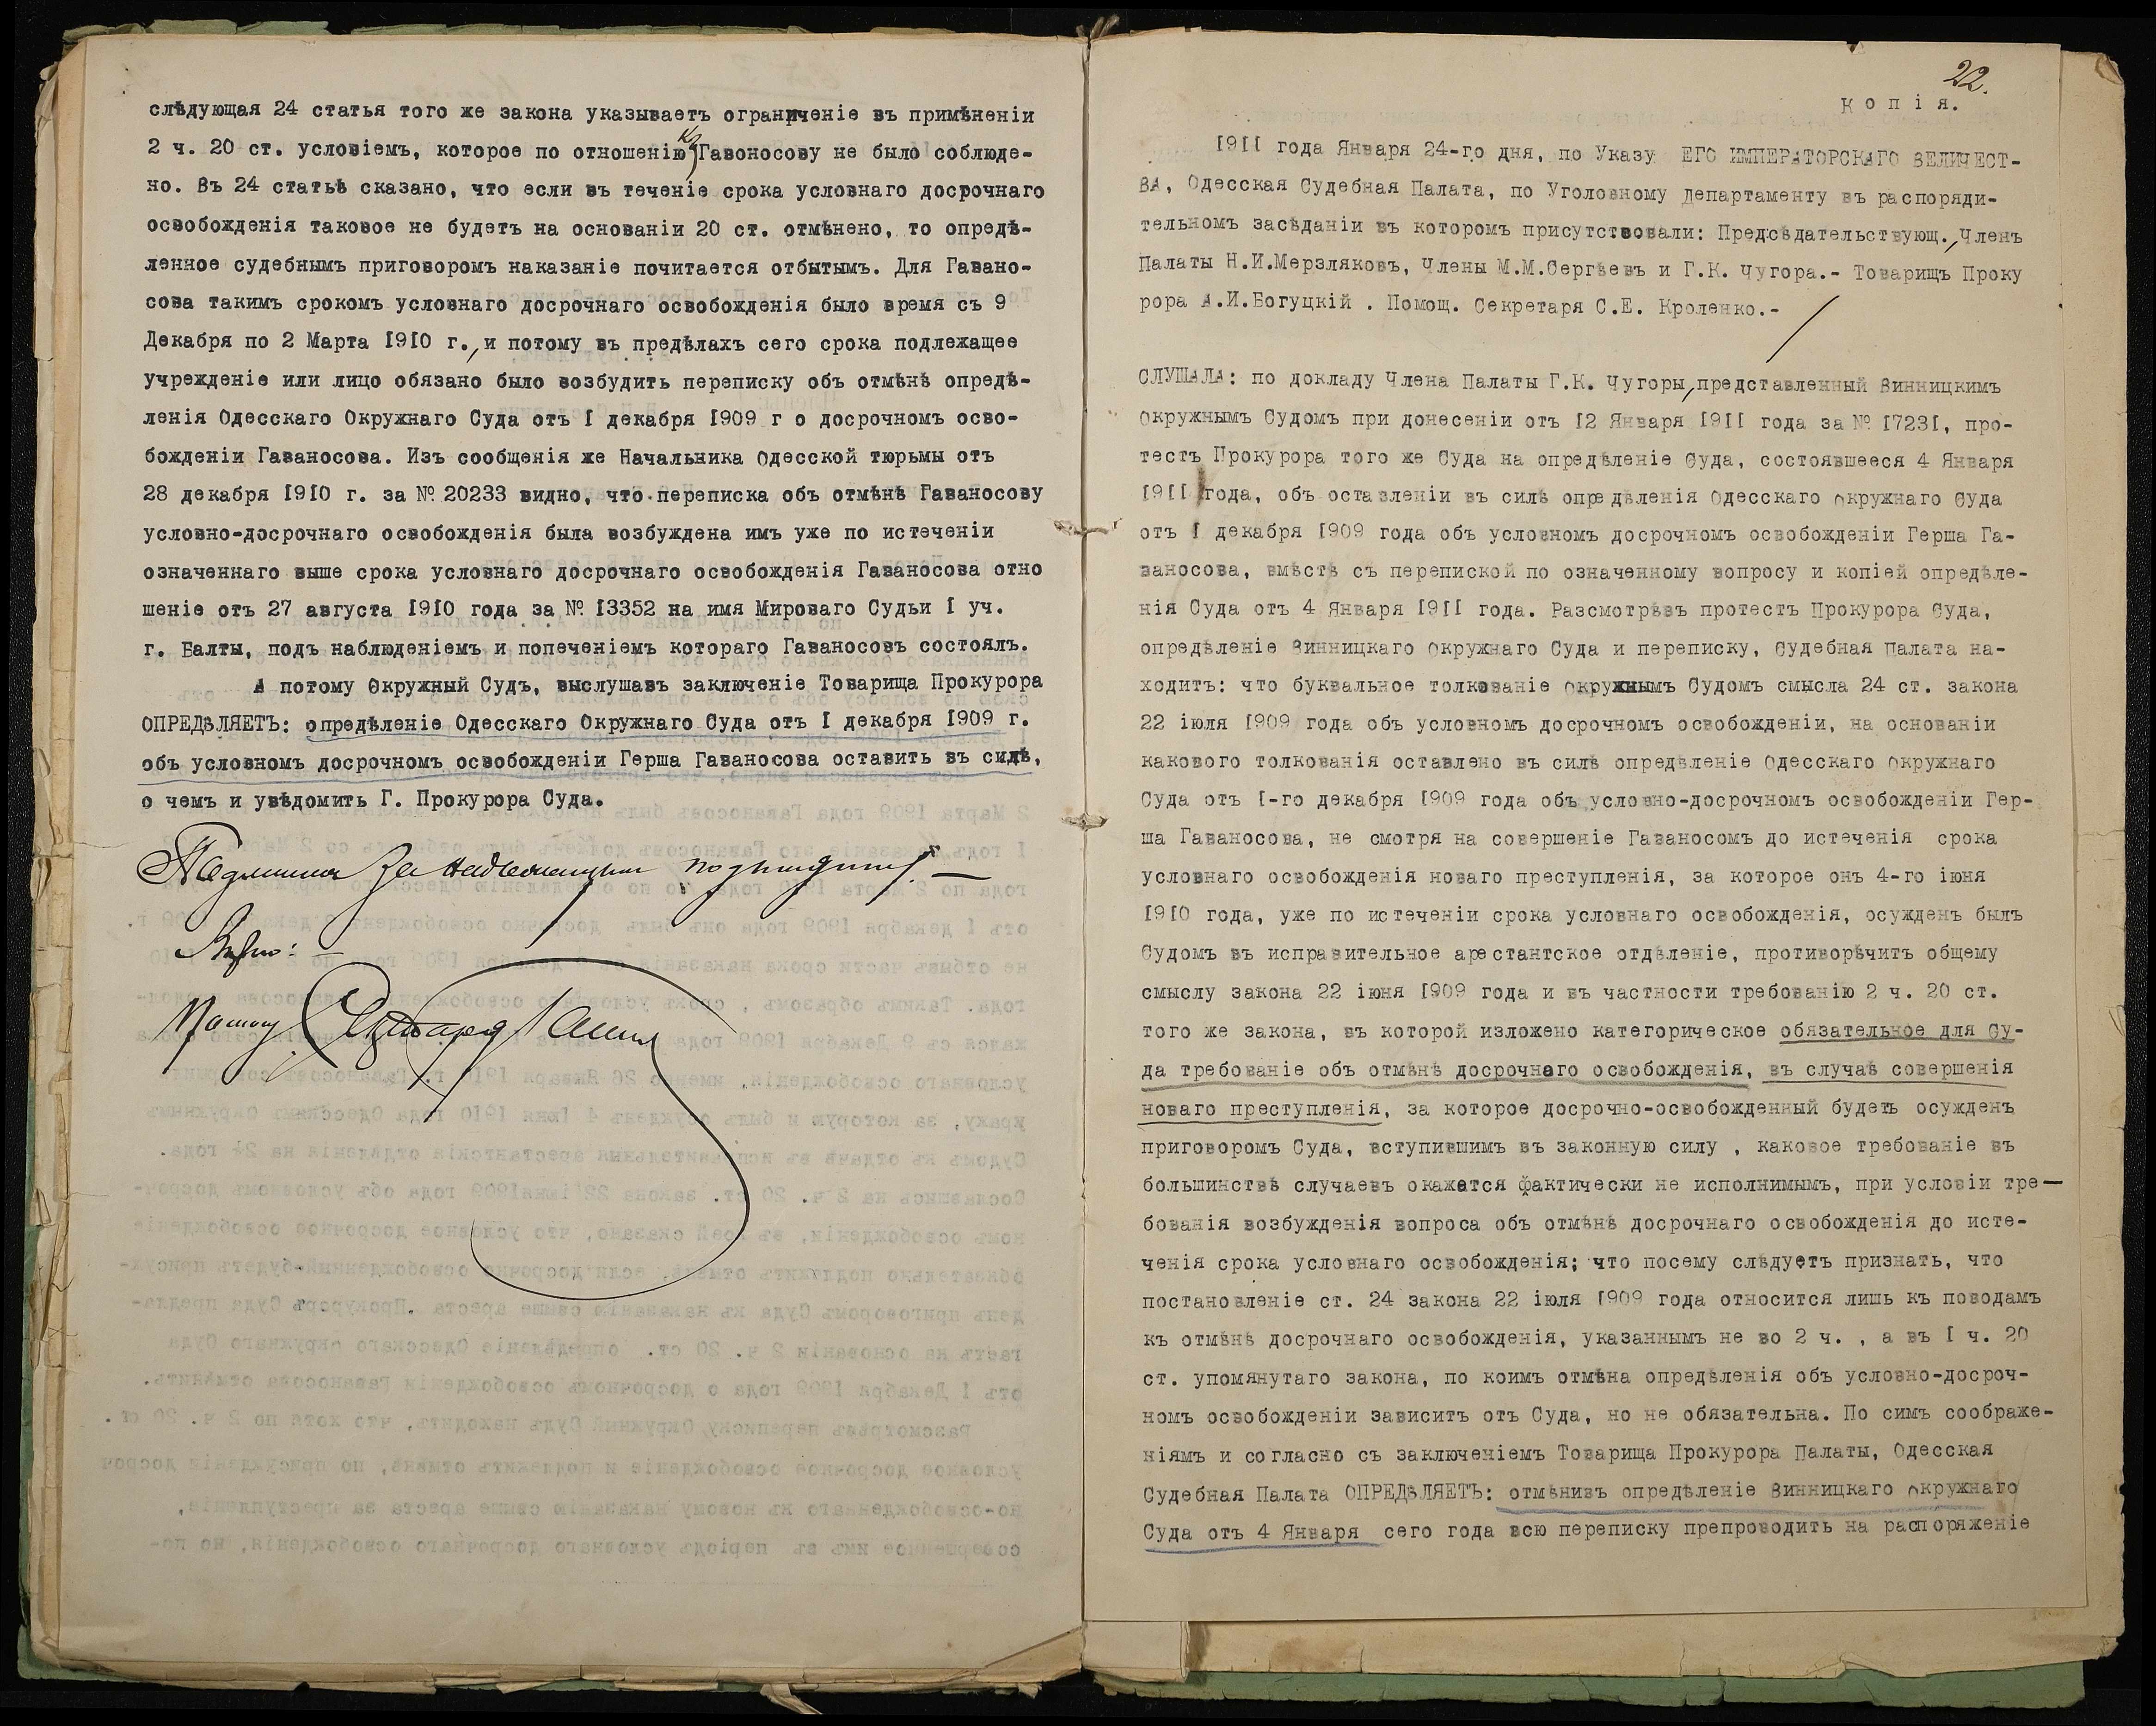 слѣдующая 24 статья того же закона указываетъ ограниченіе въ примѣненіи
2 ч. 20 ст. условіемъ, которое по отношенію къ Гавоносову не было соблюде-
но. Въ 24 статьѣ сказано, что если въ теченіе срока условнаго досрочнаго
освобожденія таковое не будетъ на основаніи 20 ст. отмѣнено, то опредѣ-
ленное судебнымъ приговоромъ наказаніе почитается отбытымъ. Для Гавано-
сова такимъ срокомъ условнаго досрочнаго освобожденія было время съ 9
Декабря по 2 Марта 1910 г., и потому въ предѣлахъ сего срока подлежащее
учрежденіе или лицо обязано было возбудить переписку объ отмѣнѣ опредѣ-
ленія Одесскаго Окружнаго Суда отъ I декабря 1909 г о досрочномъ осво-
божденіи Гаваносова. Изъ сообщенія же Начальника Одесской тюрьмы отъ
28 декабря 1910 г. за № 20233 видно, что переписка объ отмѣнѣ Гаваносову
условно-досрочнаго освобожденія была возбуждена имъ уже по истеченіи
означеннаго выше срока условнаго досрочнаго освобожденія Гаваносова отно
шеніе отъ 27 августа 1910 года за № 13352 на имя Мироваго Судьи I уч.
г. Балты, подъ наблюденіемъ и попеченіемъ котораго Гаваносовъ состоялъ.
А потому Окружный Судъ, выслушавъ заключеніе Товарища Прокурора
ОПРЕДѢЛЯЕТЪ: опредѣленіе Одесскаго Окружнаго Суда отъ I декабря 1909 г.
объ условномъ досрочномъ освобожденіи Герша Гаваносова оставить въ силѣ,
о чемъ и увѣдомить Г. Прокурора Суда.
Подлинное за надлежащими подписями. —
Вѣрно: —
Помощ. Секретаря
22.
Копія.
1911 года Января 24-го дня, по Указу ЕГО ИМПЕРАТОРСКАГО ВЕЛИЧЕСТ-
ВА, Одесская Судебная Палата, по Уголовному Департаменту въ распоряди-
тельномъ засѣданіи въ которомъ присутствовали: Предсѣдательствующ., Членъ
Палаты Н.И.Мерзляковъ, Члены М.М.Сергѣевъ и Г.К. Чугора.- Товарищъ Проку
рора А.И.Богуцкій . Помощ. Секретаря С.Е. Кроленко.-
СЛУШАЛА: по докладу Члена Палаты Г.К. Чугоры, представленный Винницкимъ
Окружнымъ Судомъ при донесеніи отъ 12 Января 1911 года за № 17231, про-
тестъ Прокурора того же Суда на опредѣленіе Суда, состоявшееся 4 Января
1911 года, объ оставленіи въ силѣ опредѣленія Одесскаго Окружнаго Суда
отъ I декабря 1909 года объ условномъ досрочномъ освобожденіи Герша Га-
ваносова, вмѣстѣ съ перепиской по означенному вопросу и копіей опредѣле-
нія Суда отъ 4 Января 1911 года. Разсмотрѣвъ протестъ Прокурора Суда,
опредѣленіе Винницкаго Окружнаго Суда и переписку, Судебная Палата на-
ходитъ: что буквальное толкованіе Окружнымъ Судомъ смысла 24 ст. закона
22 іюля 1909 года объ условномъ досрочномъ освобожденіи, на основаніи
какового толкованія оставлено въ силѣ опредѣленіе Одесскаго Окружнаго
Суда отъ I-го декабря 1909 года объ условно-досрочномъ освобожденіи Гер-
ша Гаваносова, не смотря на совершеніе Гаваносомъ до истеченія срока
условнаго освобожденія новаго преступленія, за которое онъ 4-го іюня
1910 года, уже по истеченіи срока условнаго освобожденія, осужденъ былъ
Судомъ въ исправительное арестантское отдѣленіе, противорѣчитъ общему
смыслу закона 22 іюня 1909 года и въ частности требованію 2 ч. 20 ст.
того же закона, въ которой изложено категорическое обязательное для Су-
да требованіе объ отмѣнѣ досрочнаго освобожденія, въ случаѣ совершенія
новаго преступленія, за которое досрочно-освобожденный будетъ осужденъ
приговоромъ Суда, вступившимъ въ законную силу , каковое требованіе въ
большинствѣ случаевъ окажется фактически не исполнимымъ, при условіи тре—
бованія возбужденія вопроса объ отмѣнѣ досрочнаго освобожденія до исте-
ченія срока условнаго освобожденія; что посему слѣдуетъ признать, что
постановленіе ст. 24 закона 22 іюля 1909 года относится лишь къ поводамъ
къ отмѣнѣ досрочнаго освобожденія, указаннымъ не во 2 ч. , а въ I ч. 20
ст. упомянутаго закона, по коимъ отмѣна опредѣленія объ условно-досроч-
номъ освобожденіи зависитъ отъ Суда, но не обязательна. По симъ соображе-
ніямъ и согласно съ заключеніемъ Товарища Прокурора Палаты, Одесская
Судебная Палата ОПРЕДѢЛЯЕТЪ: отмѣнивъ опредѣленіе Винницкаго Окружнаго
Суда отъ 4 Января сего года всю переписку препроводить на распоряженіе